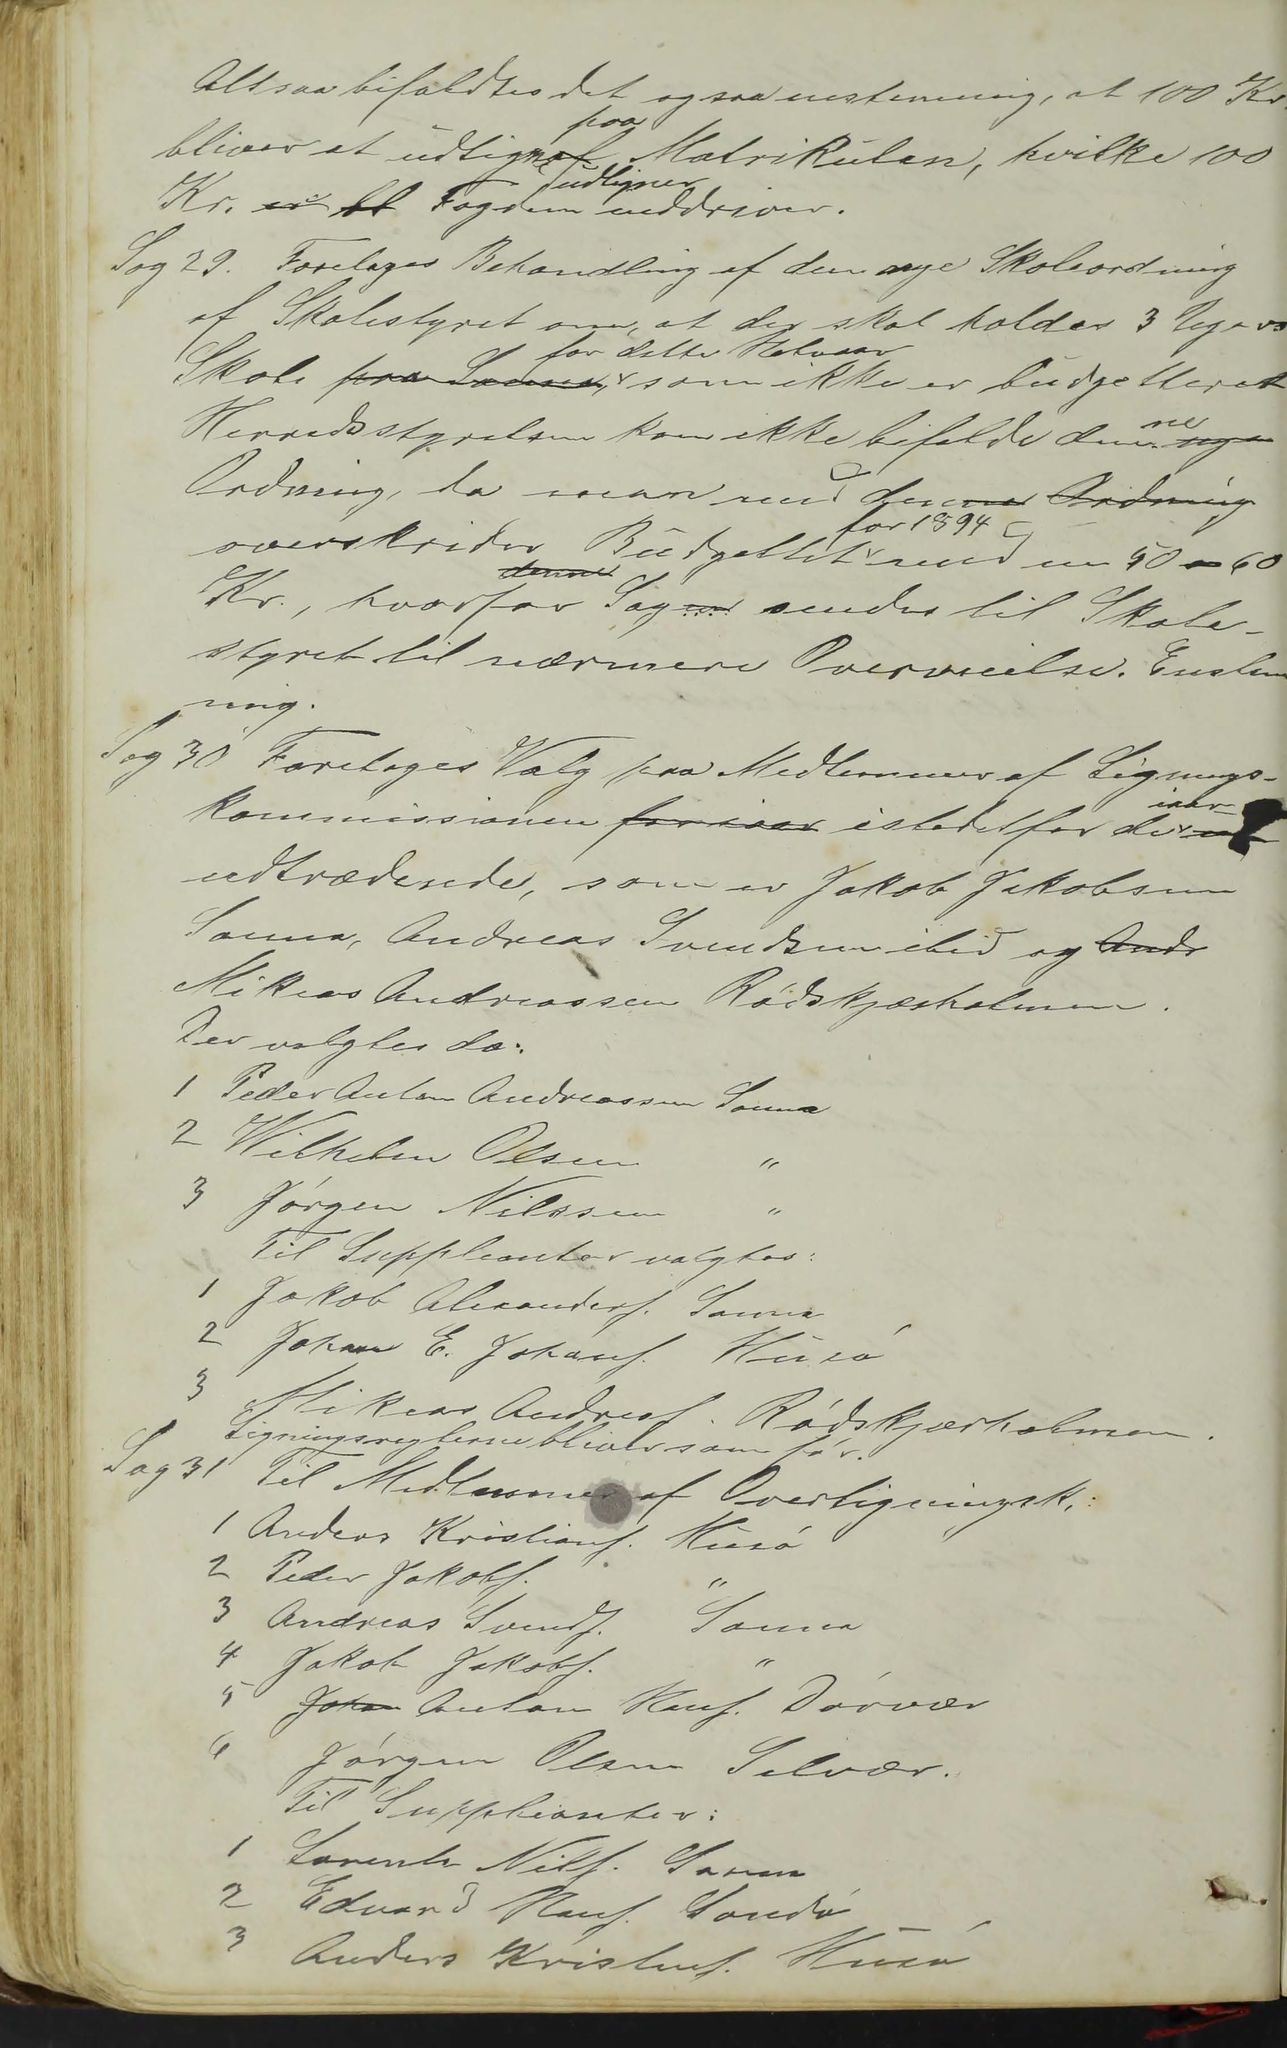 Altsaa bifaldtes det ogsaa enstemmig, at 100 Kr.
paa
bliver at udligne af Matrikulen, hvilke 100
udligner
Kr. er bl Fogden inddriver.
Sag 29. Foretages Behandling af den nye Skoleordning
af Skolestyret om, at der skal holdes 3 Ugers
for dette Halvaar
Skole paa Sanna, som ikke er budgetteret
Herredsstyrelsen kan ikke bifalde denne nye
Ordning, da man med denne Ordning
for 1894
overskrider Budgettet med en 50 a 60
denne
Kr., hvorfor Sagen sendes til Skole-
styret til nærmere Overveielse. Enstem
mig.
Sag 30 Foretages Valg paa Medlemmer af Lignings-
iaar
kommissionen for iaar istedetfor de
udtrædende, som er Jakob Jakobsen
Sanna, Andreas Svendsen ibid og Andr
Mikeas Andreassen Rødskjærholmen.
Der valgtes da:
1 Peder Anton Andreassen Sanna
2 Wilhelm Olsen "
3 Jørgen Nilssen "
Til Suppleanter valgtes:
1 Jakob Alexanders. Sanna
2 Johan E. Johans. Husø
3 Mikeas Andreas. Rødskjærholmen.
Ligningsreglerne bliver som før.
Sag 31 Til Medlemmer af Overligningsk.:
1 Anders Kristians. Husø
2 Peder Jakobs. "
3 Andreas Svends. Sanna
4 Jakob Jakobs. "
5 Johan Anton Hans. Dørvær
6 Jørgen Olsen Selvær.
Til Suppleanter:
1 Lorents Nils. Sanna
2 Edvard Hans. Sandø
3 Anders Kristens. Husø